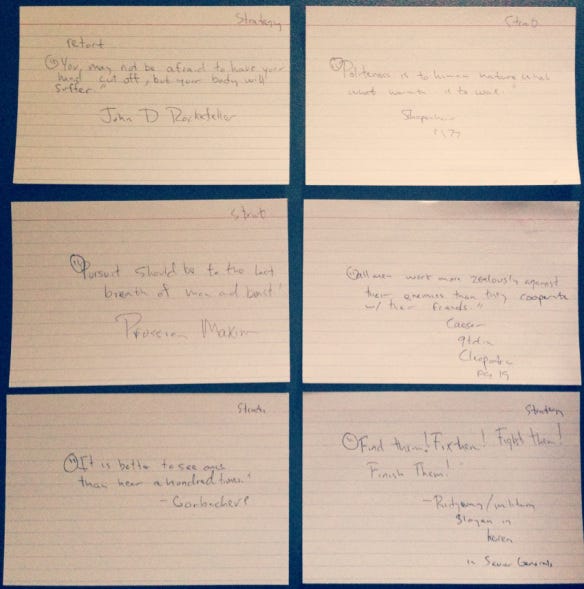 Strategy
retort
"You may not be afraid to have your
hand cut off, but your body will
suffer."
John D Rockefeller
Strat
"Politeness is to human nature what
what warmth is to wax."
Schopenhauer
Strat
"Pursuit should be to the last
breath of man and beast"
Prussian Maxim
"all men work more zealously against
their enemies than they cooperate
w/ their friends."
Caesar
qtd in
Cleopatra
pg 19
Strat
"It is better to see once
than hear a hundred times."
- Gorbachev
Strategy
"Find them! Fix them! Fight them!
Finish Them!"
- Ridgway/military
slogan in
korea
in Seven Generals